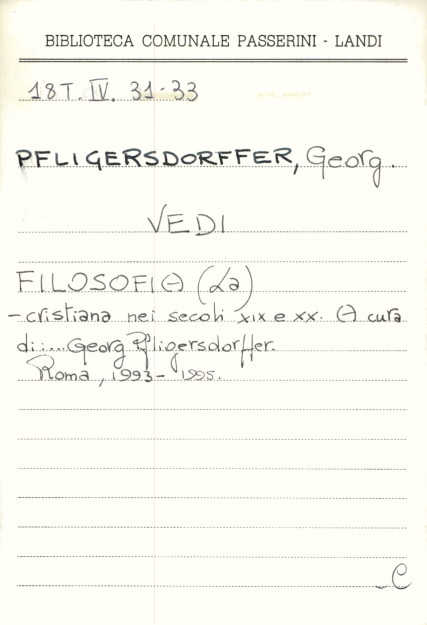 BIBLIOTECA COMUNALE PASSERINI - LANDI
18T. IV. 31-33
PFLIGERSDORFFER, Georg.
VEDI
FILOSOFIA (La)
- cristiana nei secoli XIX e XX. A cura
di:... Georg Pfligersdorffer.
Roma, 1993 - 1995.
C